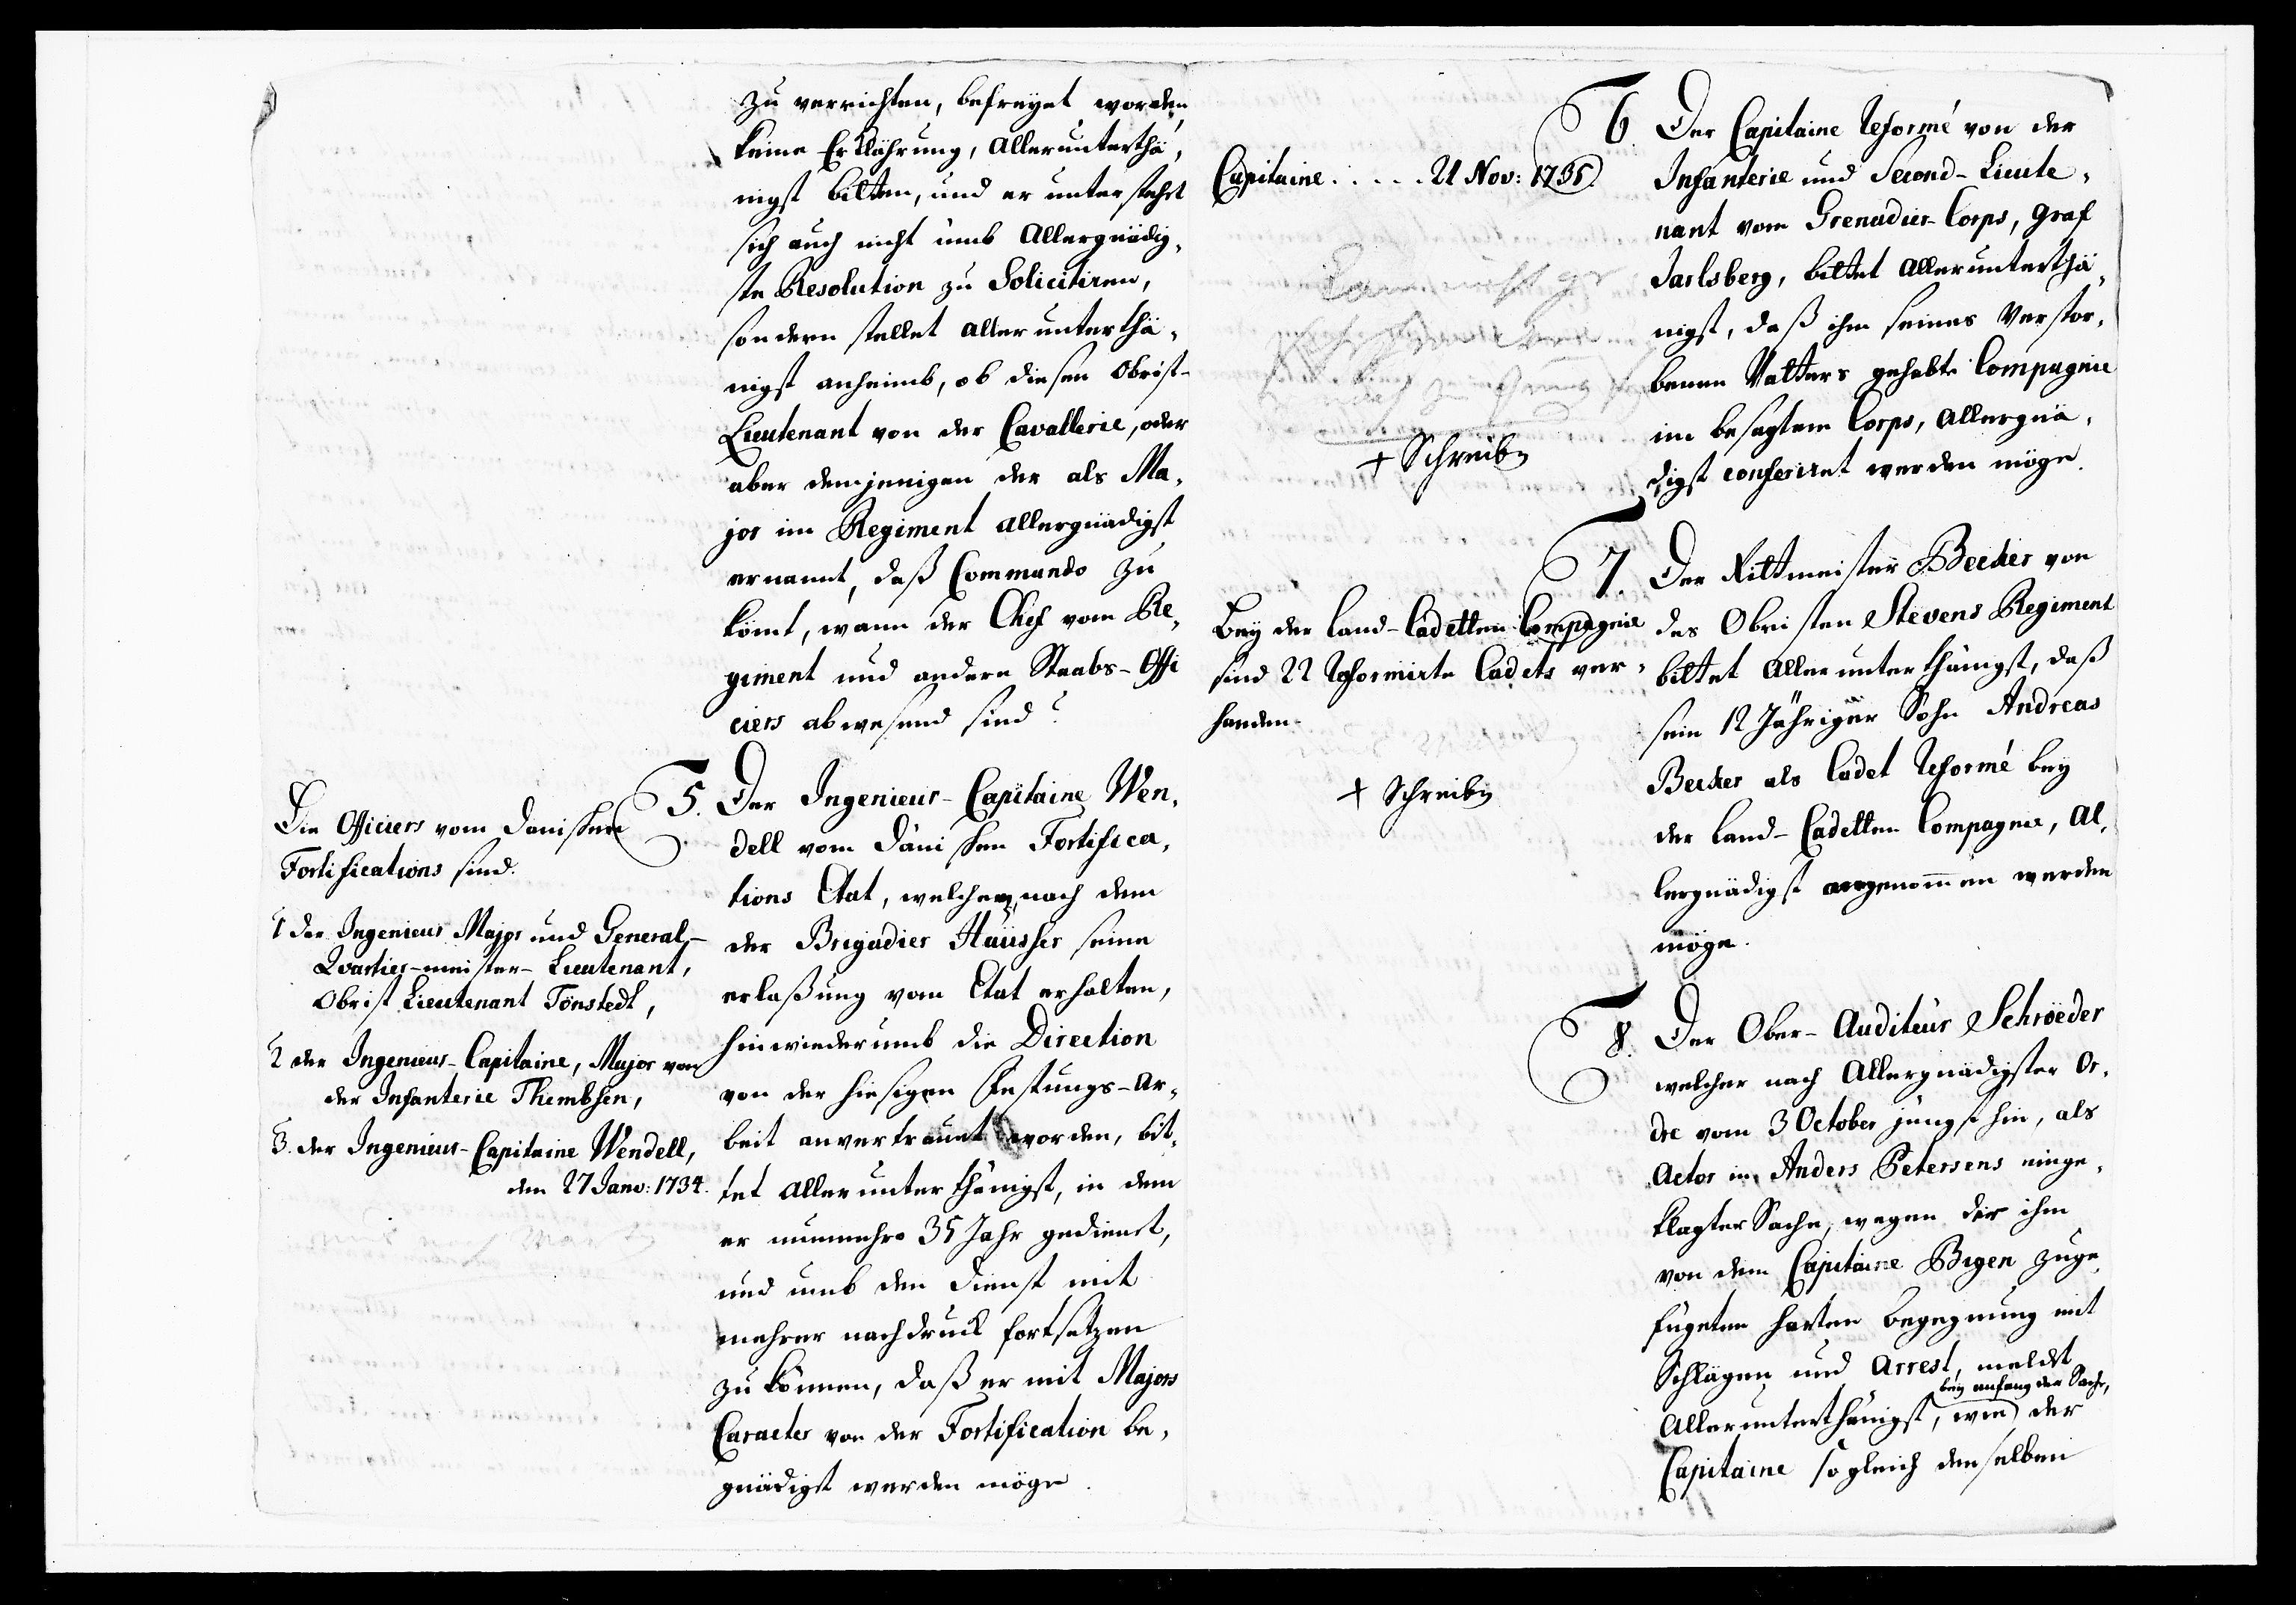 zu verrichten, befreyet worden,
keine Erklährung, Alleruntertha,
nigst bitten, und er unterstehet
sich auch nicht umb Allergnädig,
ste Resolution zu Solicitiren,
sondern stellet allerunterthä,
nigst anheimb, ob diesem Obrist-
Lieutenant von der Cavallerie, oder
aber demjenigen der als Ma,
jor im Regiment allergnädigst
ernannt, daß Commando zu
komt, wann der Chef vom Re,
giment und andere Staabs-Offi
ciers abwesend sind?
Die Officiers vom Dänischen
Fortifications sind.
1 der Ingenieur Major und General-
Qvartier-meister-Lieutenant,
Obrist Lieutenant Tönstedt,
2 der Ingenieur-Capitaine, Major von
der Infanterie Thembsen,
3. der Ingenieur-Capitaine Wendell,
den 27 Janv: 1734.
5. Der Ingenieur-Capitaine Wen,
dell vom Dänischen Fortifica,
tions Etat, welchem, nach dem
der Brigadier Häusser seine
erlaßung vom Etat erhalten,
hinwiederumb die Direction
von der hiesigen Festungs-Ar,
beit anvertrauet worden, bit,
tet allerunterthänigst, in dem
er nunmehro 35 Jahr gedienet,
und umb den Dienst mit
mehrer nachdruck fortsetzen
zu können, daß er mit Majors
Caracter von der Fortification be,
gnädigt werden möge.
Capitaine . . . . . 21 Nov: 1735.
+ Schreiben
6. Der Capitaine Reformé von der
Infanterie und Second-Lieute,
nant vom Grenadier-Corps, Graf
Jarlsberg, bittet allerunterthä,
nigst, daß ihm seines Verstor,
benen Vatters gehabte Compagnie
im besagtem Corps, Allergnä,
digst conferiret werden möge.
Bey der Land-Cadetten-Compagnie
sind 22 Reformirte Cadets ver,
handen.
+ Schreiben
7. Der Rittmeister Becker von
des Obristen Stevens Regiment
bittet Allerunterthänigst, daß
sein 12 Jähriger Sohn Andreas
Becker als Cadet Reformé bey
der Land-Cadetten Compagnie, Al,
lergnädigst angenommen werden
möge.
8. Der Ober-Auditeur Schröeder
welcher nach Allergnädigster Or,
dre vom 3 October jüngsthin, als
Actor in Anders Petersens einge,
klagter Sache, wegen der ihm
von dem Capitaine Bigen zuge,
fügeten harten begegnung mit
Schlägen und Arrest, meldet
bey anfang der Sache,
Allerunterthänigst, wie der
Capitaine sogleich denselben